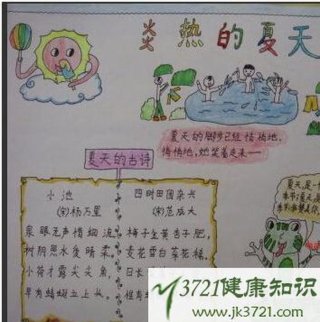 炎热的夏天
夏天的脚步已经悄悄地,
悄悄地,她笑着走来——
夏天的古诗
小池
(宋)杨万里
泉眼无声惜细流
树阴照水爱晴柔
小荷才露尖尖角
早有蜻蜓立上头
四时田园杂兴
(宋)范成大
梅子金黄杏子肥,
麦花雪白菜花稀,
日长
惟有
夏天,是一
3721健康知识
www.jk3721.com